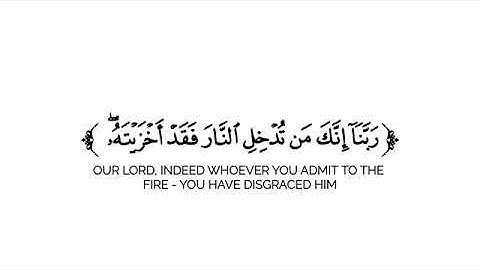 ﴿ رَبَّنَآ إِنَّكَ مَن تُدْخِلِ ٱلنَّارَ فَقَدْ أَخْزَيْتَهُۥۖ ﴾
OUR LORD, INDEED WHOEVER YOU ADMIT TO THE
FIRE - YOU HAVE DISGRACED HIM